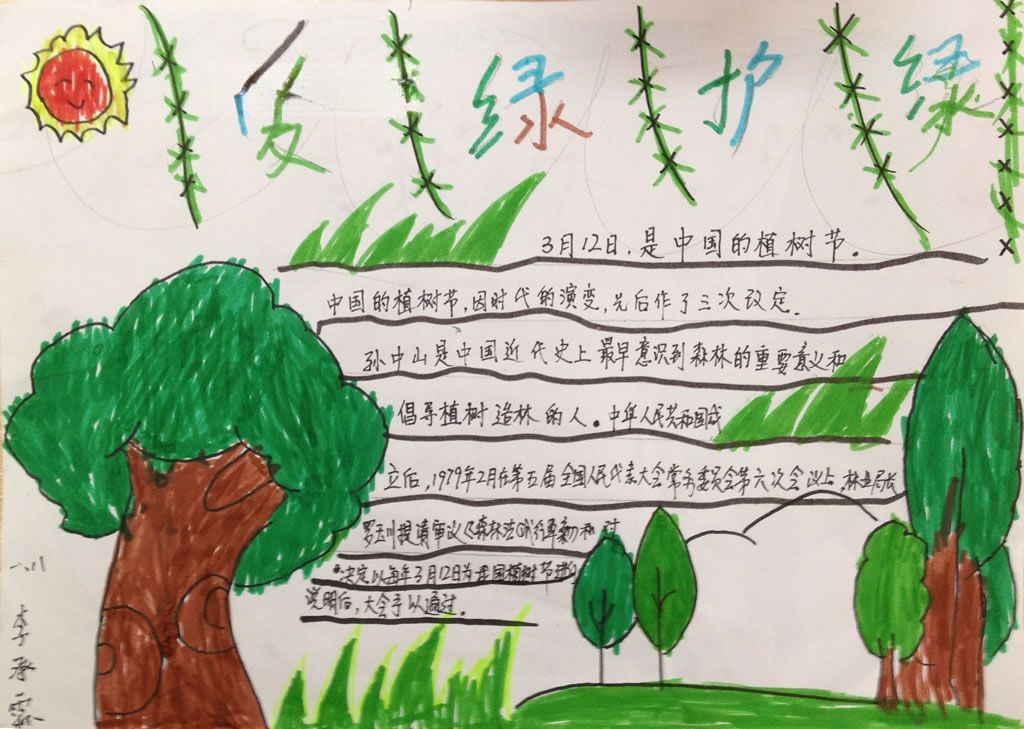 爱绿护绿
3月12日，是中国的植树节。
中国的植树节，因时代的演变，先后作了三次设定。
孙中山是中国近代史上最早意识到森林的重要意义和
倡导植树造林的人。中华人民共和国成
立后，1979年2月在第五届全国人民代表大会常务委员会第六次会议上，林业局长
罗玉川提请审议《森林法(草案)》和对
决定以每年3月12日为我国植树节进行
说明后，大会予以通过。
李承霖